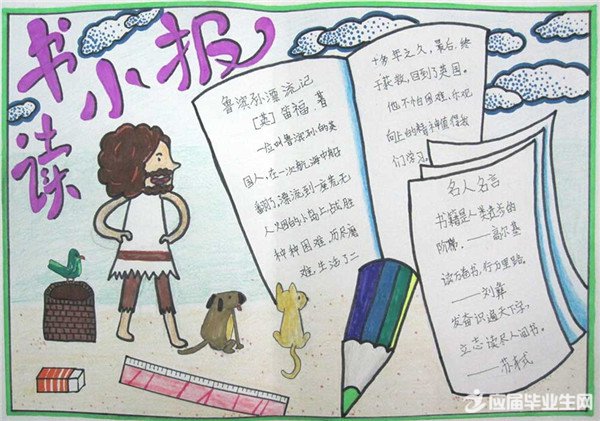 读书小报
鲁滨孙漂流记
[英] 笛福 著
一位叫鲁滨孙的英
国人,在一次航海中船
翻了,漂流到一座荒无
人烟的小岛上战胜
种种困难,历尽磨
难,生活了二
十多年之久,最后,终
于获救,回到了英国。
他不怕困难,乐观
向上的精神值得我
们学习。
名人名言
书籍是人类进步的
阶梯。——高尔基
读万卷书,行万里路。
——刘彝
发奋识遍天下字,
立志读尽人间书。
——苏东式
应届毕业生网